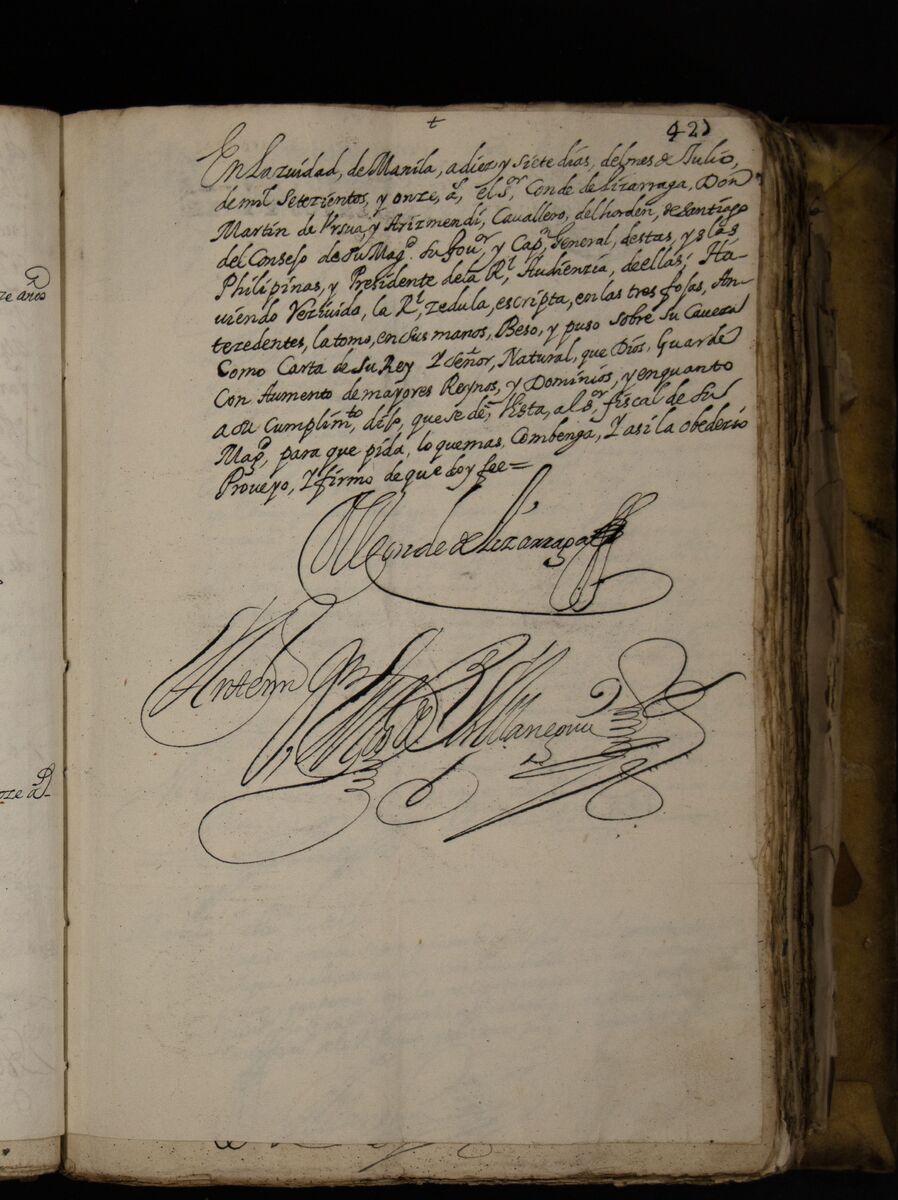 +
421
En la zuidad, de Manila, a diez y siete dias, del mes de Julio,
de mil Setezientos, y onze, aˢ, el Sᵒʳ, Conde de Lizarraga, Don
Martin de Vrsua, y Arizmendi, Cavallero, del horden, de Santiago
del Consejo de Su Magᵈ. Su Gouᵒʳ, y Capⁿ General, destas, yslas
Philipinas, y Presidente de la Rˡ, Audienzia, de ellas; Ha-
uiendo Reziuido, la Rˡ, zedula, escripta, en las tres fojas, An-
tezedentes, la tomo, en sus manos, Beso, y puso sobre su Caveza
Como Carta de Su Rey Y Señor, Natural, que Dios, Guarde
Con Aumento de mayores Reynos, y Dominios, y en quanto
a su Cumplimᵗᵒ, dijo, que se de, Vista, al Sᵒʳ, fiscal de Su
Magᵈ, para que pida, lo que mas, Combenga, Y asi la obedezio
Proueyo, Y firmo de que doy fee =
El Conde de Lizarraga
Ante mi
ze años
oze aˢ